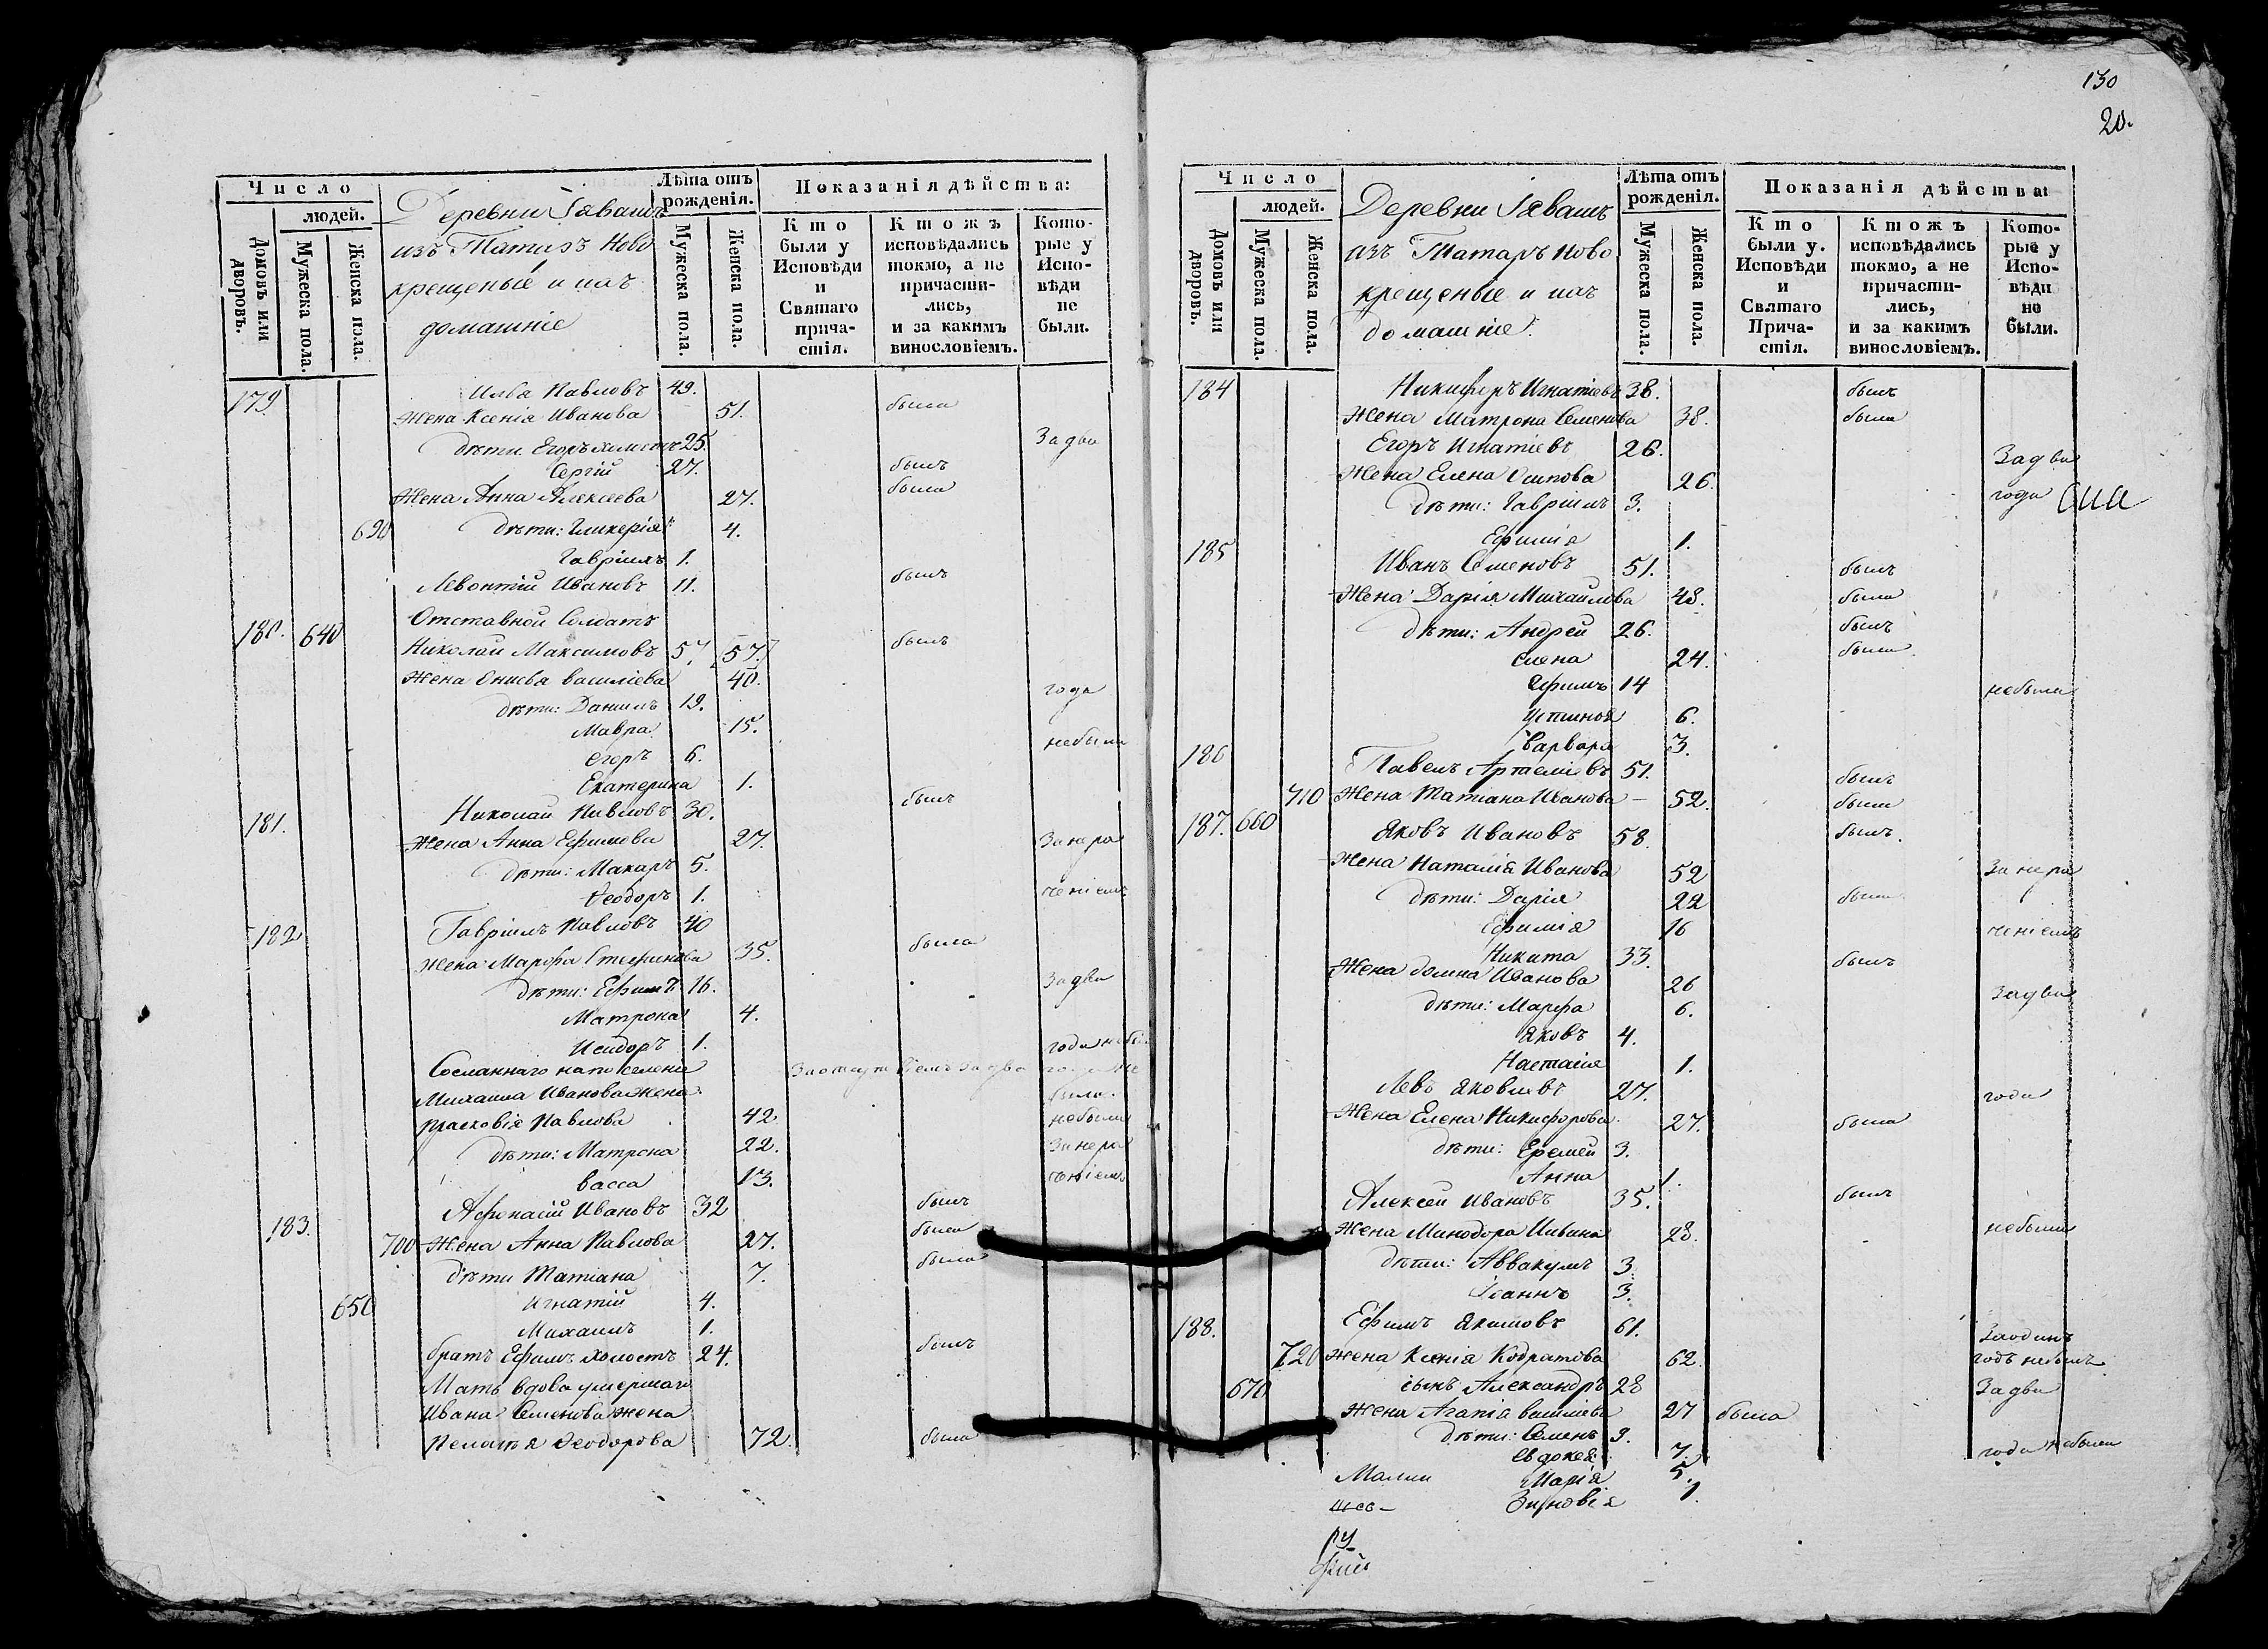 Число
людей.
Домовъ или дворовъ.
Мужеска пола.
Женска пола.
Деревни Іявашъ
изъ Татаръ Ново
крещеные и ихъ
домашніе
Лѣта отъ рожденія.
Мужеска пола.
Женска пола.
Показанія дѣйства:
Кто были у Исповѣди и Святаго причастія.
Ктожъ исповѣдались токмо, а не причастились, и за какимъ винословіемъ.
Которые у Исповѣди не были.
179. Илья Павловъ 49.
Жена Ксенія Иванова 51. была
дѣти Егоръ холостъ 25. За два
Сергій 27. былъ
Жена Анна Алексеева 27. была
690 дѣти: Гликерія 4.
Гавріилъ 1.
Левонтій Ивановъ 11. былъ
Отставной Солдатъ
180. 640 Николай Максимовъ 57 57. былъ
Жена Василіева 40. года
дѣти: Даниилъ 19.
Мавра 15.
Егоръ 6. небыли
Екатерина 1.
181. Николай Павловъ 30. былъ
Жена Анна Ефимова 27. За нера
дѣти: Макаръ 5.
Ѳеодоръ 1. ченіемъ
182 Гавріилъ Павловъ 40
Жена: Марфа Стефанова 35. была
дѣти: Ефимъ 16. За два
Матрона 4.
Исидоръ 1. года небы.
Сосланнаго на поселеніе
Михаила Иванова жена
Прасковія Павлова 42 небыли
дѣти: Матрона 22. За нера
Васса 13. ченіемъ
Афонасій Ивановъ 32 былъ
183. 700 Жена Анна Павлова 27. была
дѣти Татіана 7. была
650 Игнатій 4.
Михаилъ 1.
братъ Ефимъ холостъ 24. былъ
Мать вдова умершаго
Ивана Семенова жена
Пелагея Ѳеодорова 72. была
130
20.
Число
людей.
Домовъ или дворовъ.
Мужеска пола.
Женска пола.
Деревни Іявашъ
изъ Татаръ Ново
крещеные и ихъ
домашніе.
Лѣта отъ рожденія.
Мужеска пола.
Женска пола.
Показанія дѣйства:
Кто были у Исповѣди и Святаго Причастія.
Ктожъ исповѣдались токмо, а не причастились, и за какимъ винословіемъ.
Которые у Исповѣди не были.
184 Никифоръ Игнатіевъ 38. былъ
Жена Матрона Семенова 38. была
Егоръ Игнатіевъ 26. За два
Жена Елена Осипова 26.
дѣти: Гавріилъ 3. года
Ефимія 1.
185 Иванъ Семеновъ 51. былъ
Жена Дарія Михайлова 48. была
дѣти: Андрей 26. былъ
Елена 24. была
Ефимъ 14 небыли
Устинья 6.
Варвара 3.
186 Павелъ Артеміевъ 51. былъ
710 Жена Татіана Иванова 52. была
187. 660 Яковъ Ивановъ 58. былъ
Жена Наталія Иванова 52 За нера
дѣти: Дарія 22 была
Ефимія 16 ченіемъ
Никита 33. былъ
Жена Домна Иванова 26 За два
дѣти: Марфа 6.
Яковъ 4.
Настасія 1.
Левъ Яковлевъ 27. года
Жена Елена Никифорова 27. была
дѣти: Еремей 3.
Анна 1.
Алексей Ивановъ 35. былъ
Жена Минодора Ильина 28. небыли
дѣти: Аввакумъ 3.
Іоаннъ 3.
188. Ефимъ Якимовъ 61. За одинъ
720 Жена Ксенія Кодратова 62. годъ небылъ
670 сынъ Александръ 28 За два
Жена Агапія Василіева 27 была
дѣти: Семенъ 9. года небыли
Евдокея 7.
Марія 5.
Зиновія 1.